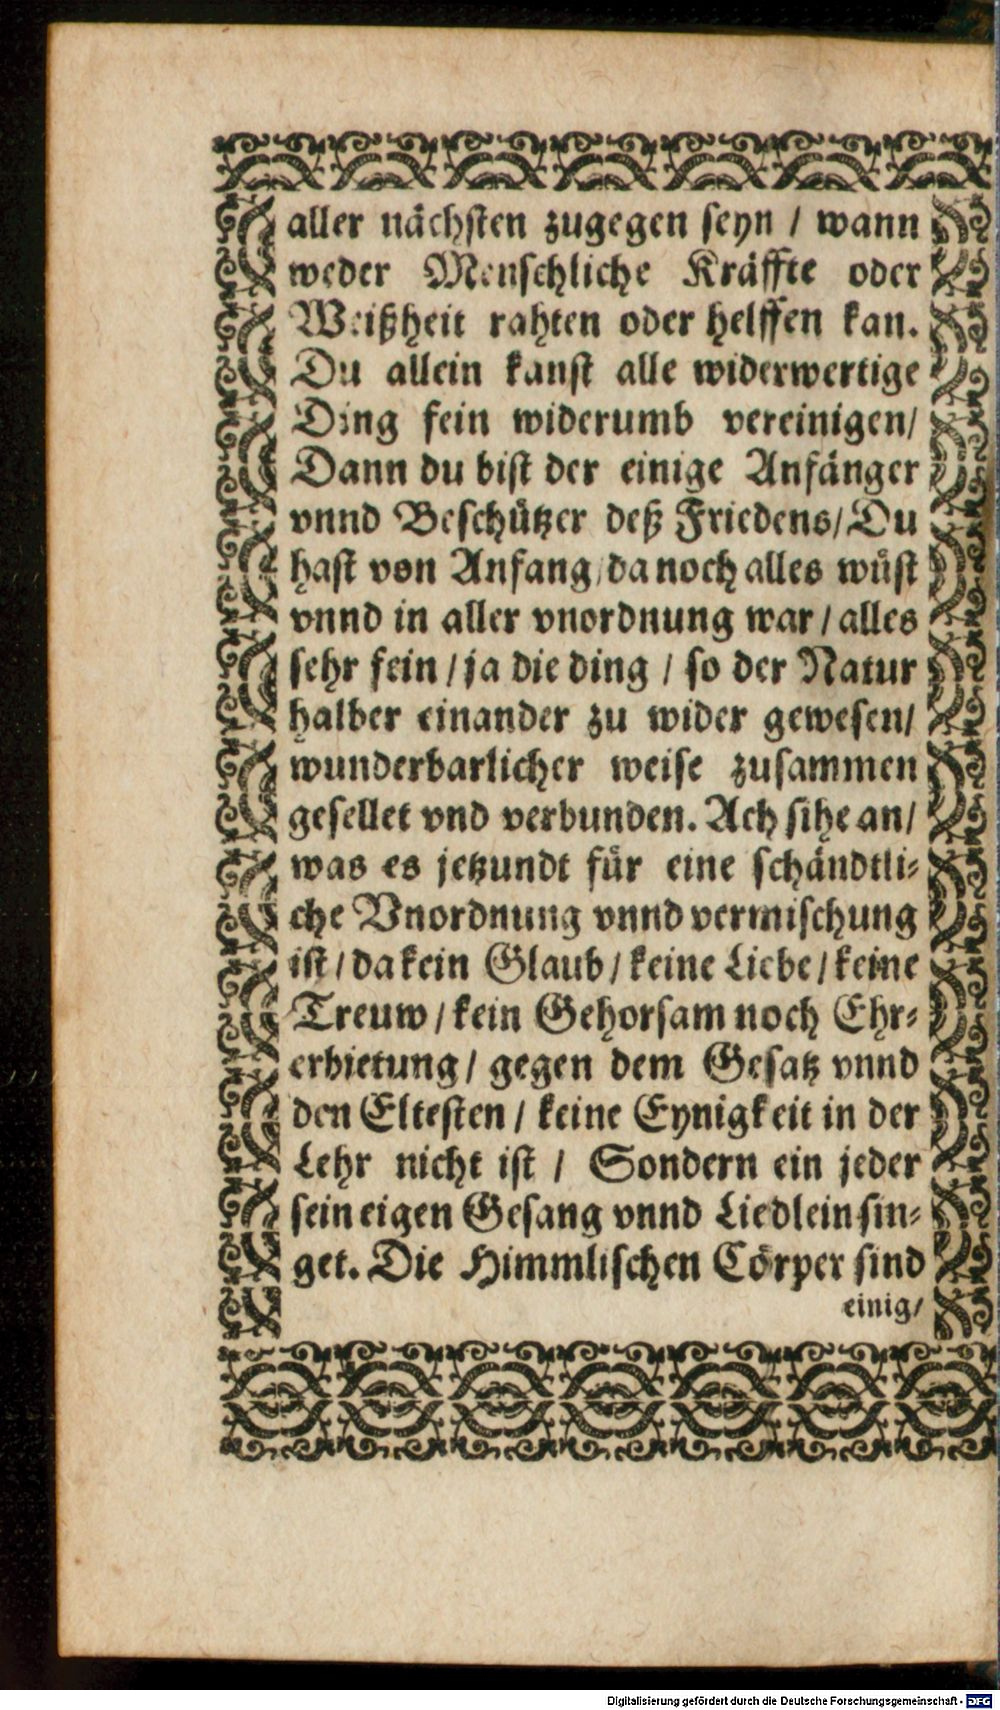 aller nächsten zugegen seyn / wann
weder Menschliche Kräffte oder
Weißheit rahten oder helffen kan.
Du allein kanst alle widerwertige
Ding fein widerumb vereinigen/
Dann du bist der einige Anfänger
vnnd Beschützer deß Friedens/ Du
hast von Anfang / da noch alles wüst
vnnd in aller vnordnung war / alles
sehr fein / ja die ding / so der Natur
halber einander zu wider gewesen/
wunderbarlicher weise zusammen
gesellet vnd verbunden. Ach sihe an/
was es jetzundt für eine schändtli⸗
che Vnordnung vnnd vermischung
ist / da kein Glaub / keine Liebe / keine
Treuw / kein Gehorsam noch Ehr⸗
erbietung / gegen dem Gesatz vnnd
den Eltesten / keine Eynigkeit in der
Lehr nicht ist / Sondern ein jeder
sein eigen Gesang vnnd Liedlein sin⸗
get. Die Himmlischen Cörper sind
einig/
Digitalisierung gefördert durch die Deutsche Forschungsgemeinschaft - DFG